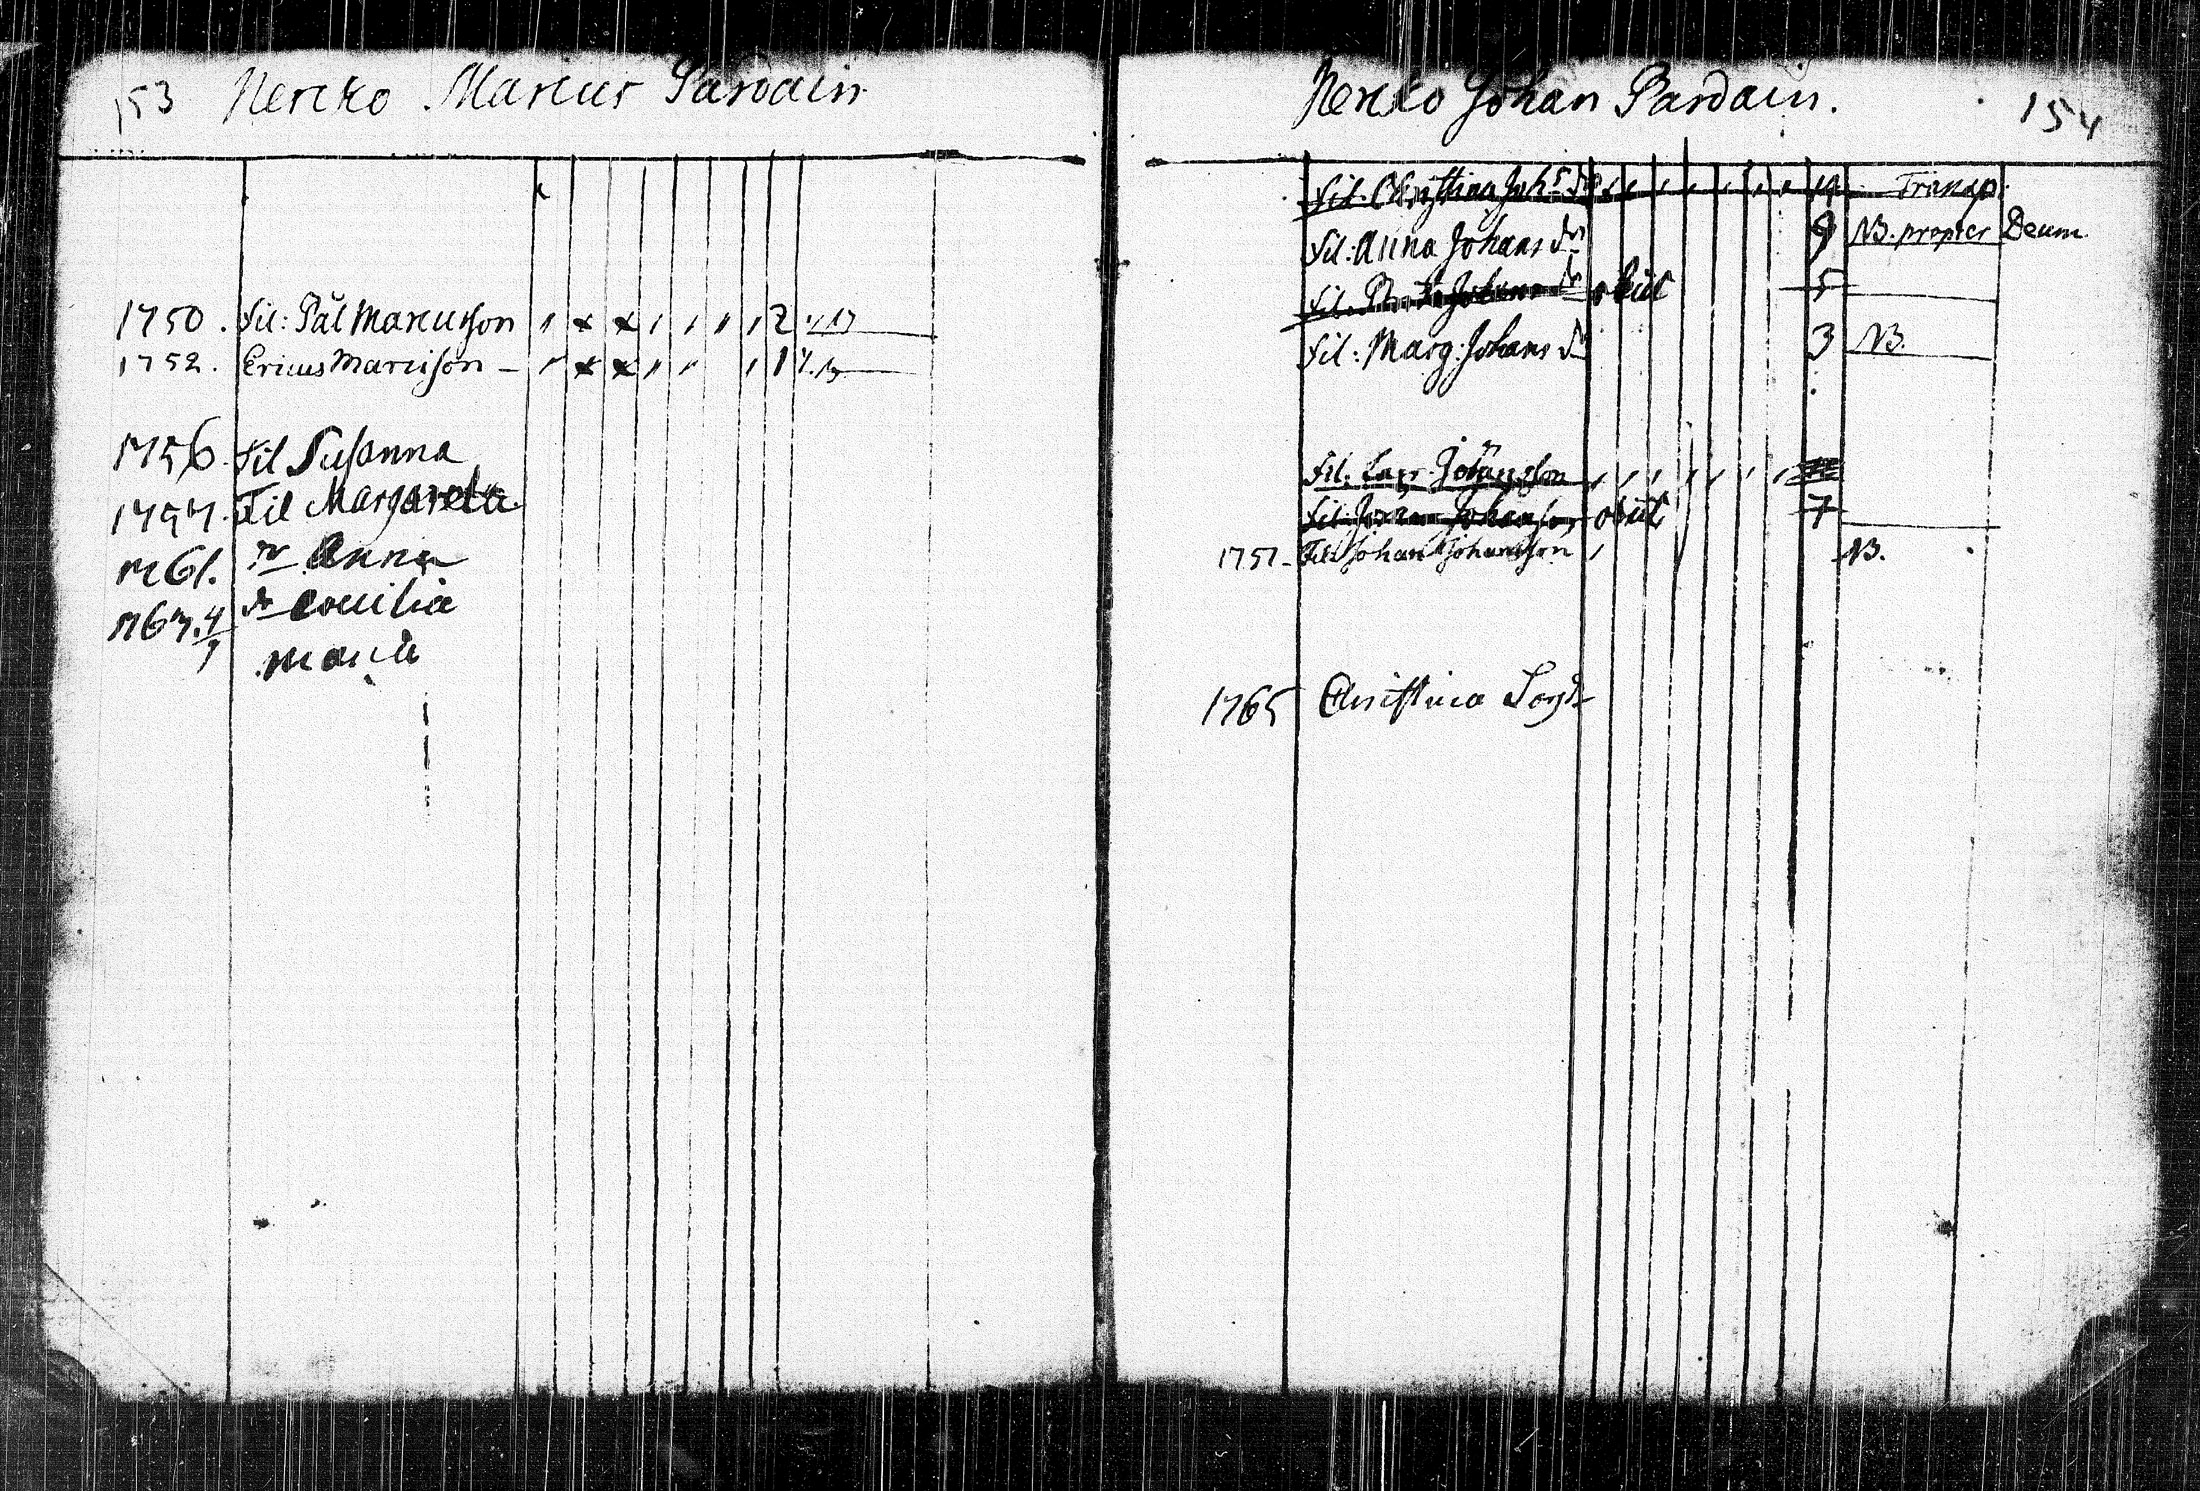 153 Nericko Marcus Pardain
1750. fil: Pål Marcusson 2
1752. Ericus Marcisson
1756. fil Susanna
1757. Fil Margareta
1761. Dr Anna
1767. 4/7 dr Cecilia
Maria
Nericko Johan Pardain. 154
fil. Christina Joh: dr 14 Transp.
fil: Anna Johans dr 9 NB. propter Deum
fil. Johans dr obiit 5
fil: Marg: Johans dr 3 NB.
fil. Lars Johansson
fil. Johansson obiit 7
1751. Fil: Johan Johansson NB.
1765 Christina